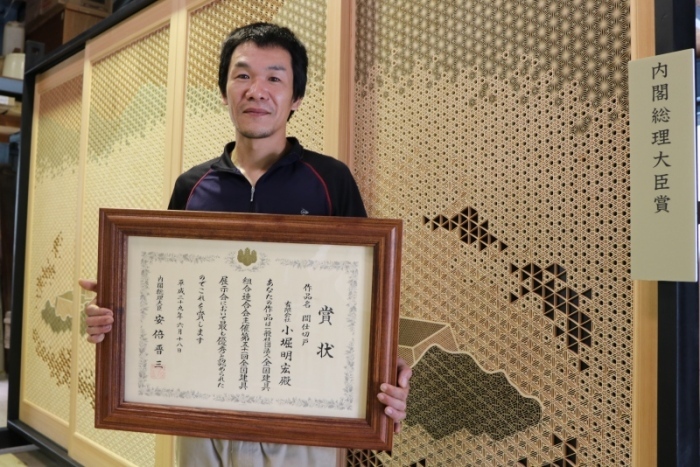 内閣総理大臣賞
賞状
作品名 間仕切戸
有限会社 小堀明宏殿
あなたの作品は一般社団法人全国建具
組合連合会主催第五十一回全国建具
展示会において最も優秀と認められた
のでこれを賞します
平成二十九年六月十八日
内閣総理大臣 安倍晋三